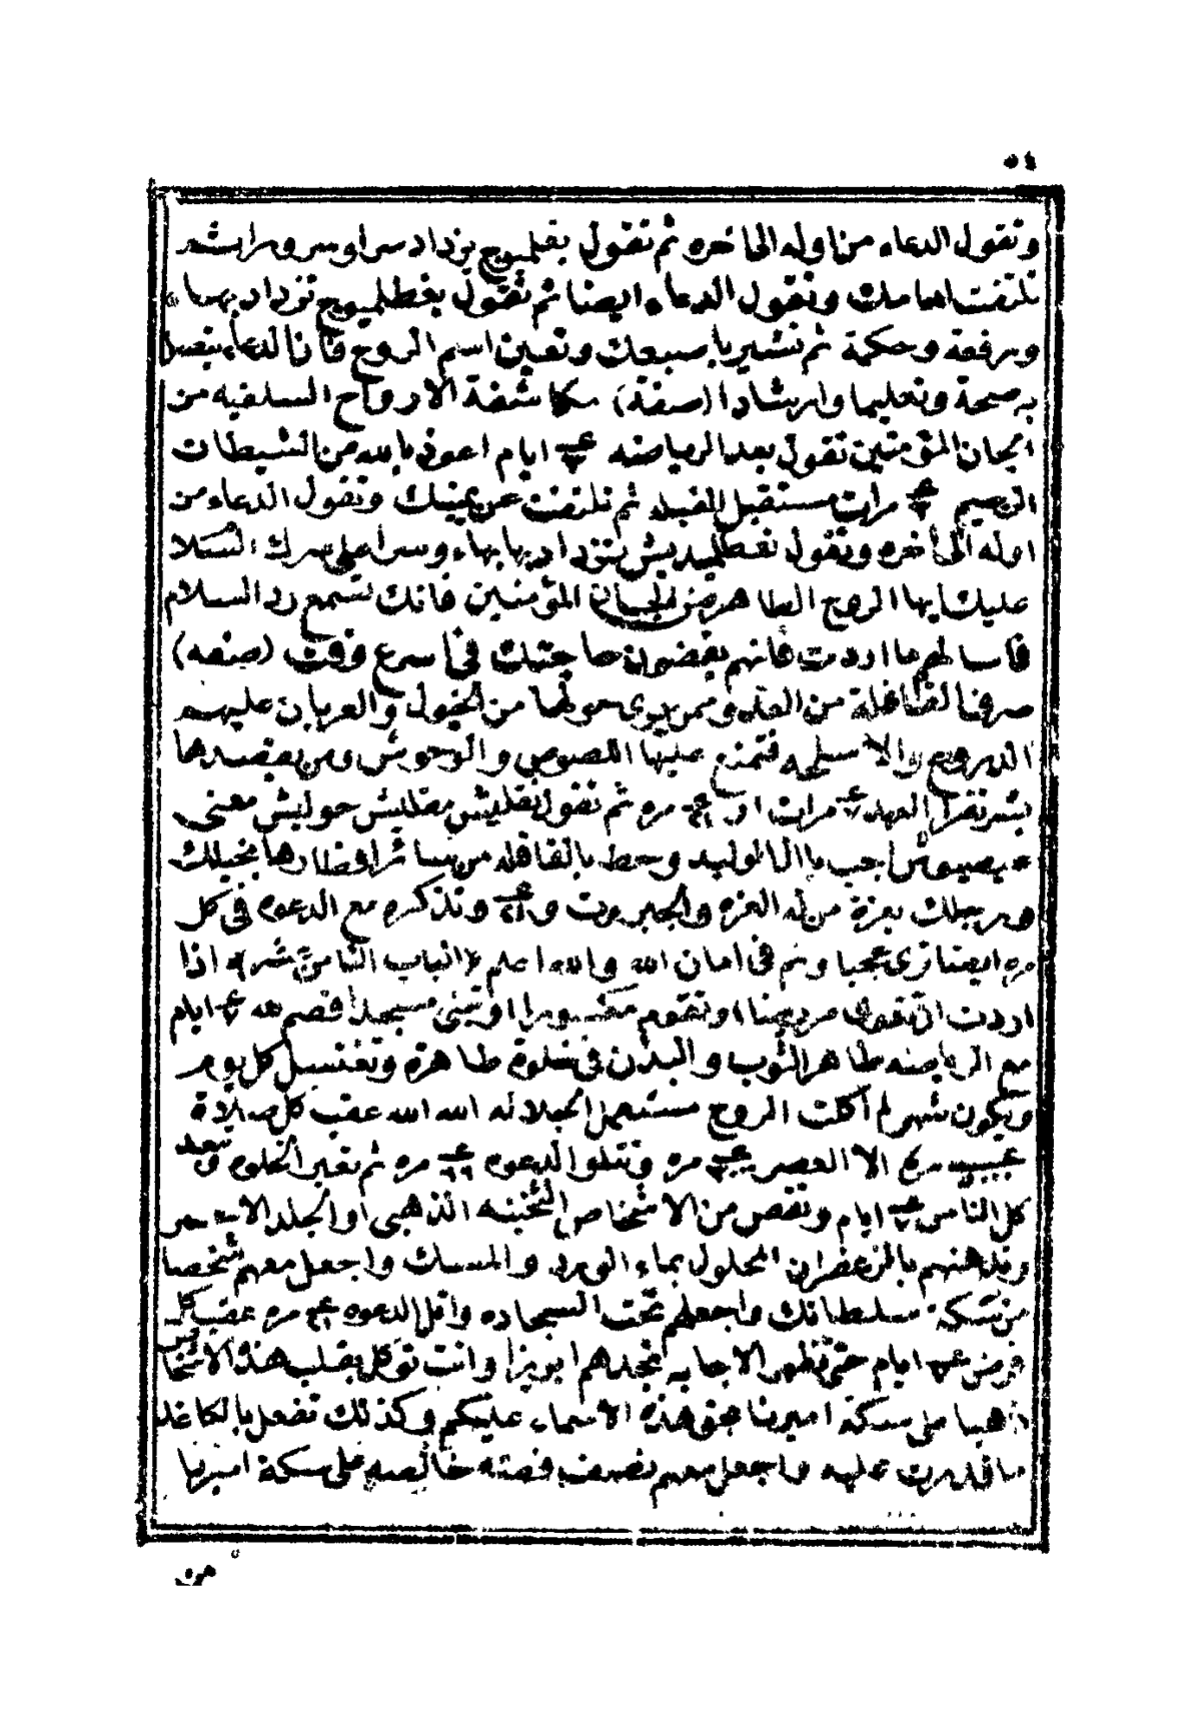 ٥٤
وتقول الدعاء من اوله الى اخره ثم تقول بغطليوج يزداد سرا وسرورا ثم
تلتفت امامك وتقول الدعاء ايضا ثم تقول بغطليوج تزداد بهاء
ورفعة وحكمة ثم تشير باصبعك وتعين اسم الروح فان الدعاء يتصل
به صحة وتعليما وارشادا (صفة) مكاشفة الارواح السلفيه من
الجان المؤمنين تقول بعد الرياضه ايام اعوذ بالله من الشيطان
الرجيم مرات مستقبل القبله ثم تلتفت عن يمينك وتقول الدعاء من
اوله الى اخره وتقول تزداد بها بهاء وسرا على سرك السلام
عليك ايها الروح الطاهر من الجان المؤمنين فانك تسمع رد السلام
فاسالهم ما اردت فانهم يقضون حاجتك في اسرع وقت (صفه)
صرفنا القافلة من العدو وممن حولها من الخيول والعربان عليهم
الدروع والاسلحه فتمنع عليها اللصوص والوحوش ومن يقصدها
بشر تقرا العهد مرات او مره ثم تقول بقليش مقليش حوليش معنى
يصيوش اجب يا ابا الوليد وحط بالقافله من سائر اقطارها بخيلك
ورجلك بعزة من له العزه والجبروت و وتذكره مع الدعوه في كل
مره ايضا ترى عجبا ونم في امان الله والله اعلم (الباب الثامن عشر) اذا
اردت ان تقوى مريضا او تقوم مكسورا او تبنى مسجدا فصم لله ايام
مع الرياضه طاهر الثوب والبدن في خلوة طاهرة وتغتسل كل يوم
وتكون شهر لم اكلت الروح مستعمل الجلاله الله الله عقب كل صلاة
مره الا العصر مره وتتلوا الدعوه مره ثم تغير الخلوه وتبعد
كل الناس ايام وتقص من الاشخاص الثخينه الذهبى او الجلد الاحمر
وتدهنهم بالزعفران المحلول بماء الورد والمسك واجعل معهم شخصا
من سكة سلطانك واجعلهم تحت السجاده واتل الدعوه مره عقب كل
فرض ايام حتى تظهر الاجابه تجدهم ابريزا وانت توكل بقلب هذه الاشخاص
ذهبا على سكة اميرنا بحق هذه الاسماء عليكم وكذلك تفعل بالكاغد
ما قدرت عليه واجعل معهم نصف فضه خالصه على سكة اميرنا
من